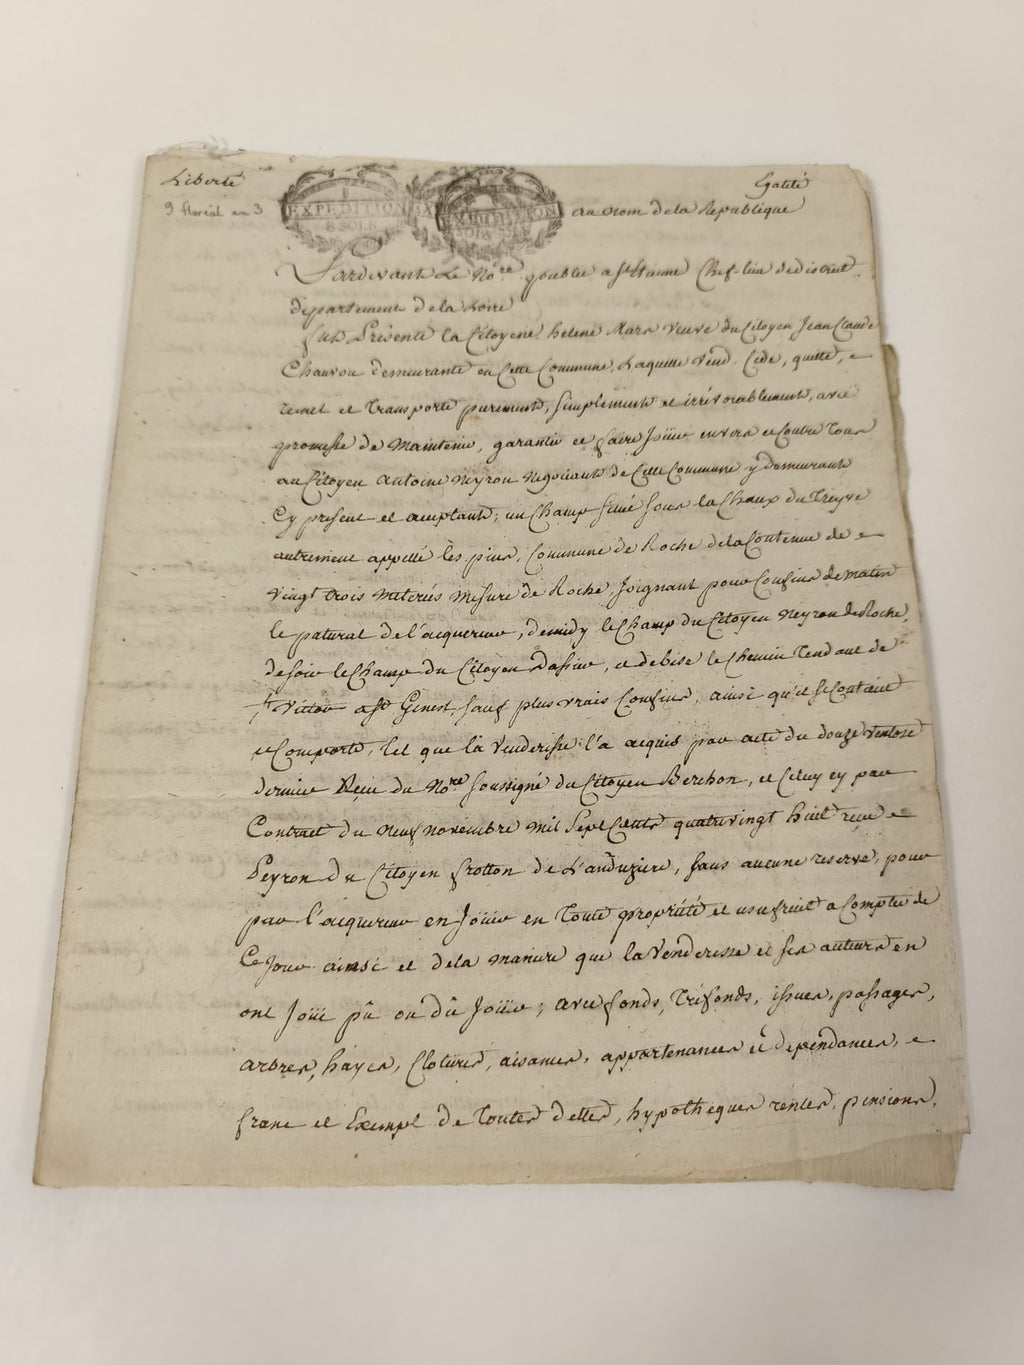 Liberté Egalité
9 floréal an 3
EXPEDITION
8 SOLS
au nom de la Republique
Pardevant Le No.re public a st Etienne Chef-lieu de district
département de la Loire
fut Présente la Citoyene helene Mars veuve du Citoyen Jean Claude
Chauvou demeurante en Cette Commune, Laquelle vend, Cède, quitte,
remet et transporte purement, simplement et irrévocablement, avec
promesse de maintenir, garantir et faire Joüir envers et Contre Tous
au Citoyen Antoine Neyron Negociant de Cette Commune y demeurant
Cy present et acceptant; un Champ situé sous la Chaux du Treyve
autrement appellé les pins, Commune de Roche de la Contenue de
vingt trois meterés mesure de Roche, Joignant pour Confins de matin
le patural de l'acquereur, de midy le Champ du Citoyen Neyron de Roche,
de soir le Champ du Citoyen Dassier, et de bise le Chemin Tendant de
a St Genest, sauf plus vrais Confins, ainsi qu'il se Contient
et Comporte, tel que la venderesse l'a acquis par acte du douze ventose
dernier Reçu du No.re soussigné du Citoyen Berchon, et Celuy cy par
Contract du neuf novembre mil sept Cents quatrevingt huit reçu
Peyron du Citoyen frotton de L'anduziere, sans aucune reserve, pour
par l'acquereur en Joüir en toute propriété et usufruit a Compter de
Ce Jour ainsi et de la maniere que la venderesse et ses auteurs en
ont Joüi pû ou dû Joüir; avec fonds, Tréfonds, issues, passages,
arbres, hayes, Clotures, aisances, appartenances et dependances,
franc et Exempt de Toutes dettes, hypotheques rentes, pensions,